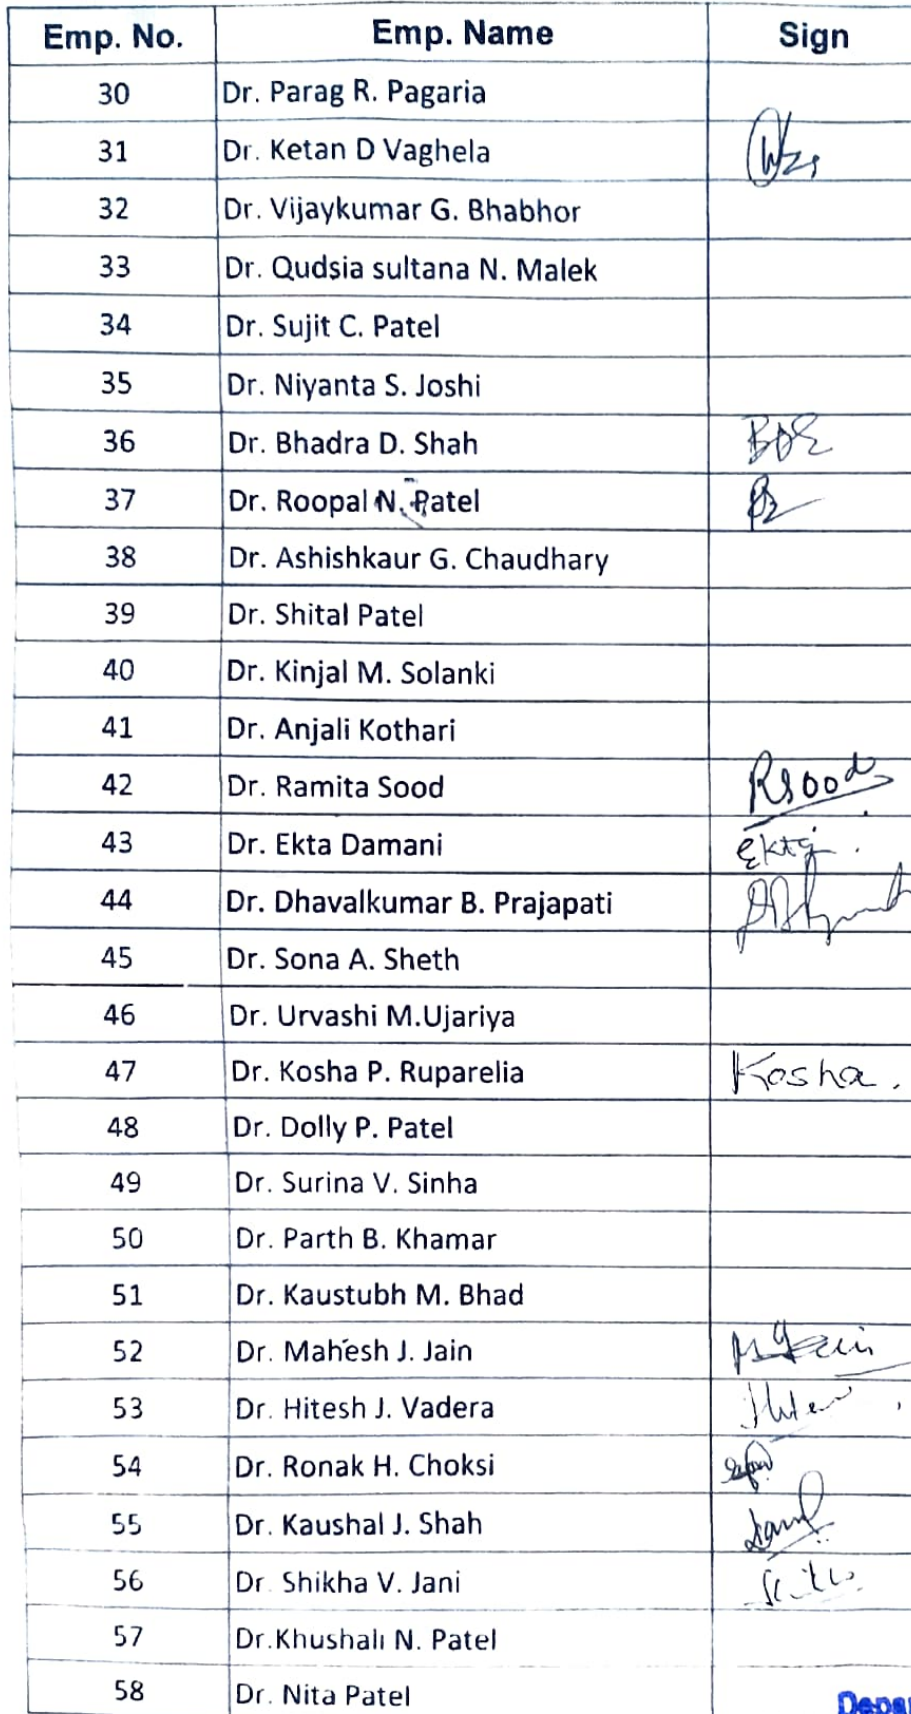 Emp. No. Emp. Name Sign
30 Dr. Parag R. Pagaria
31 Dr. Ketan D Vaghela
32 Dr. Vijaykumar G. Bhabhor
33 Dr. Qudsia sultana N. Malek
34 Dr. Sujit C. Patel
35 Dr. Niyanta S. Joshi
36 Dr. Bhadra D. Shah
37 Dr. Roopal N. Patel
38 Dr. Ashishkaur G. Chaudhary
39 Dr. Shital Patel
40 Dr. Kinjal M. Solanki
41 Dr. Anjali Kothari
42 Dr. Ramita Sood RSood
43 Dr. Ekta Damani Ekta
44 Dr. Dhavalkumar B. Prajapati
45 Dr. Sona A. Sheth
46 Dr. Urvashi M.Ujariya
47 Dr. Kosha P. Ruparelia Kosha.
48 Dr. Dolly P. Patel
49 Dr. Surina V. Sinha
50 Dr. Parth B. Khamar
51 Dr. Kaustubh M. Bhad
52 Dr. Mahesh J. Jain
53 Dr. Hitesh J. Vadera
54 Dr. Ronak H. Choksi
55 Dr. Kaushal J. Shah
56 Dr. Shikha V. Jani
57 Dr.Khushali N. Patel
58 Dr. Nita Patel